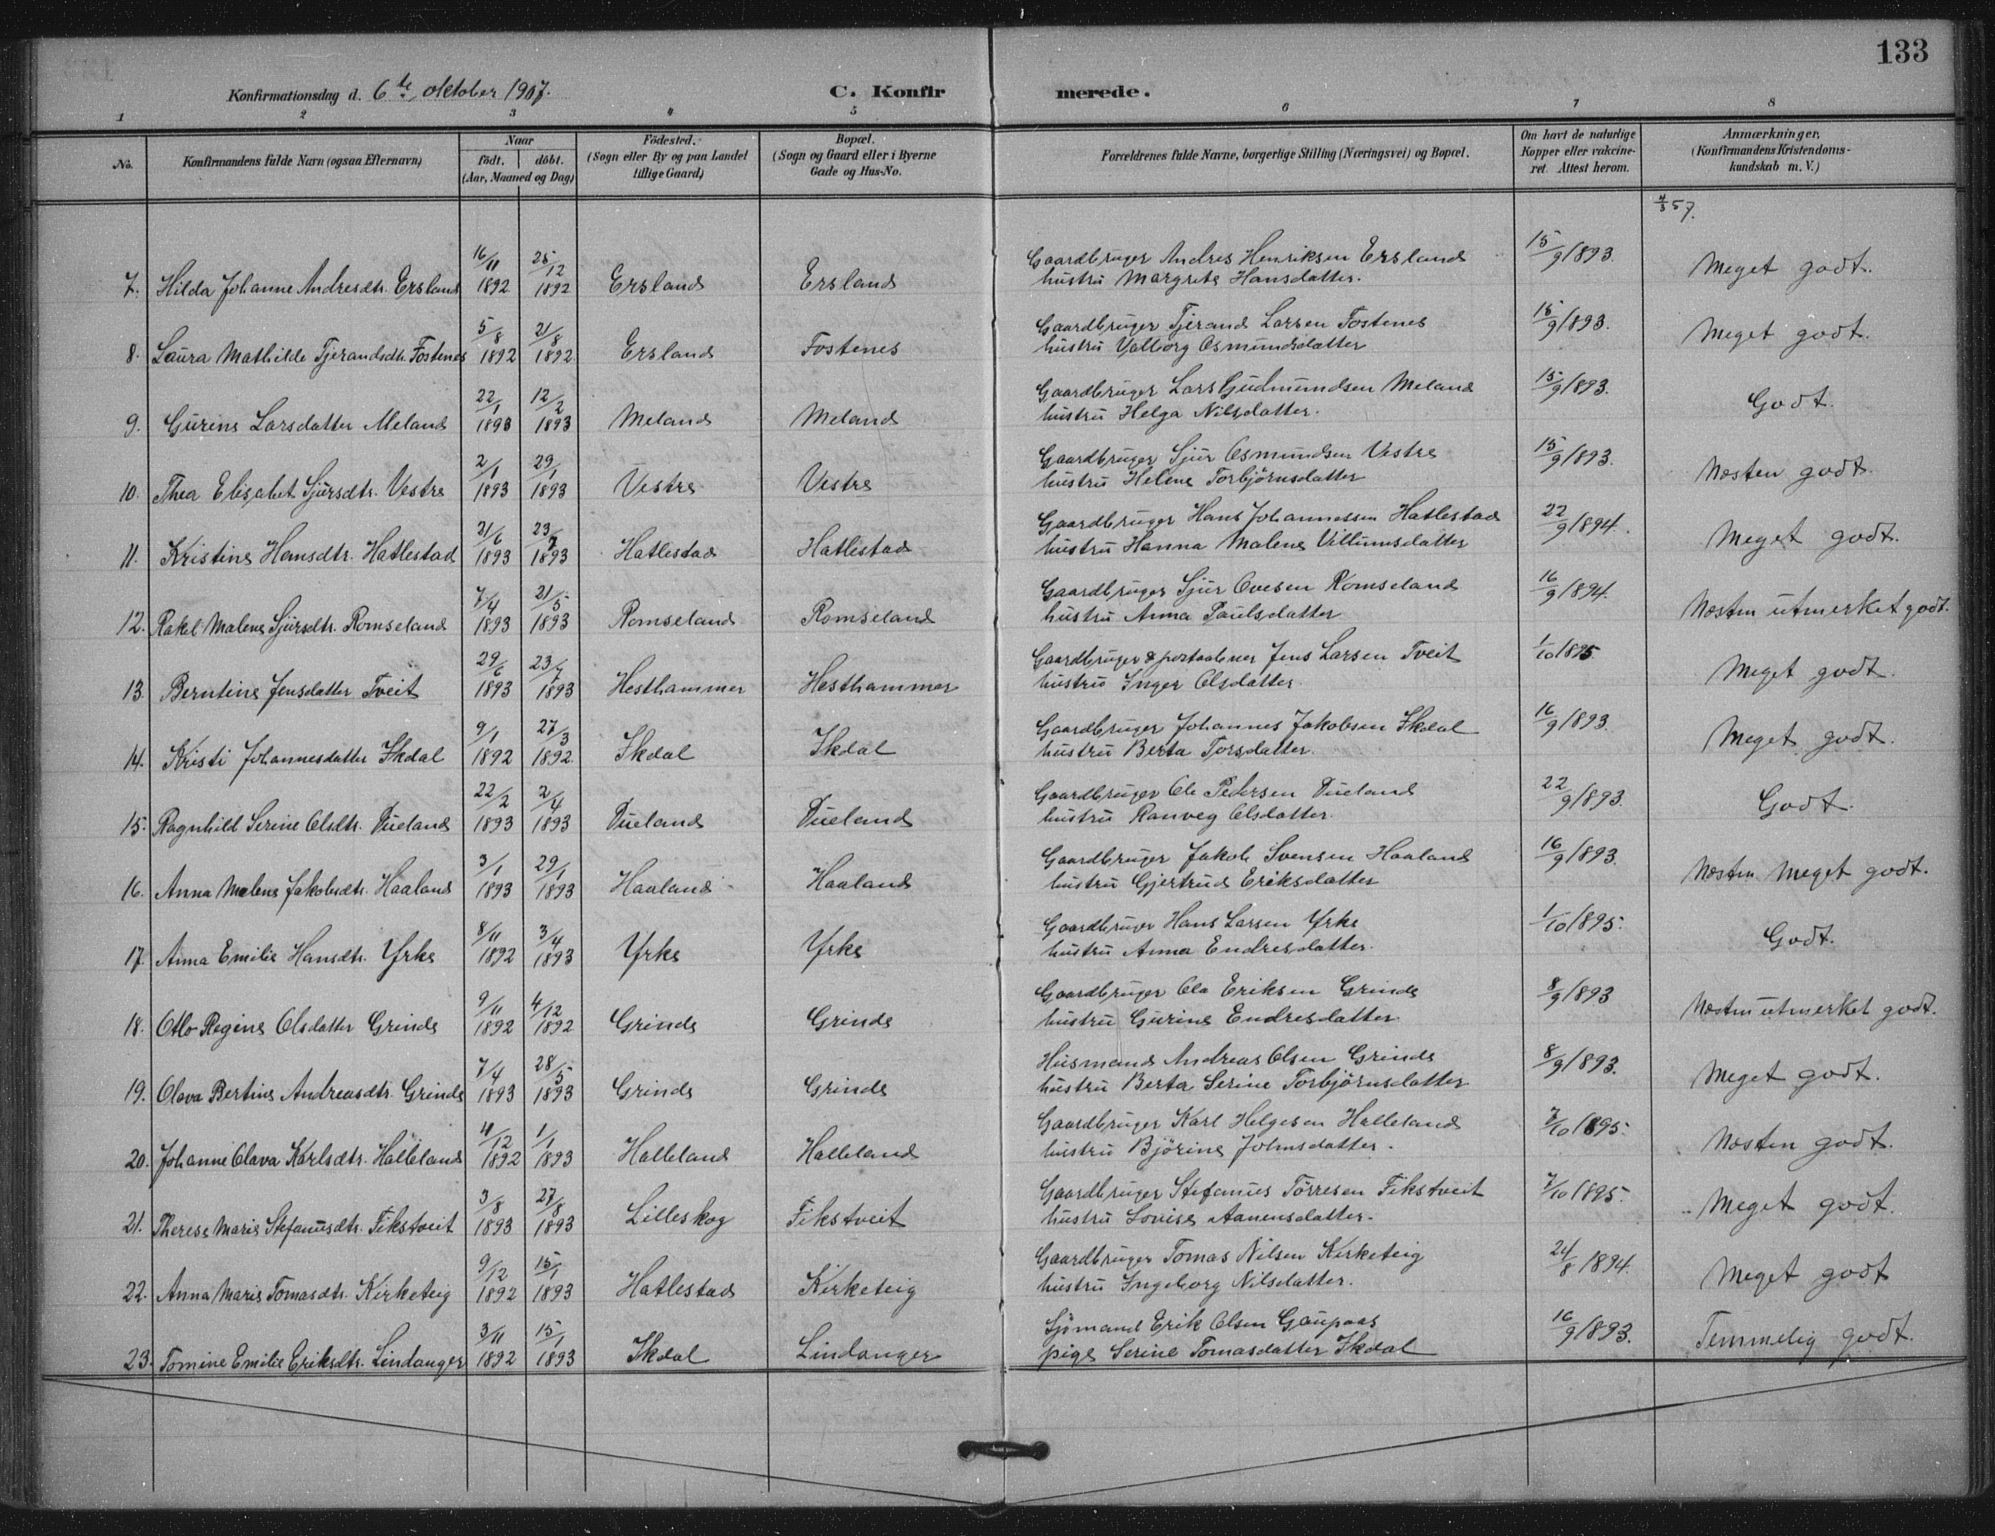 133
Konfirmationsdag d. 6te oktober 1907. C. Konfirmerede.
1 2 3 4 5 6 7 8
No. Konfirmandens fulde Navn (ogsaa Efternavn) Naar födt. döbt. (Aar, Maaned og Dag) Födested. (Sogn eller By og paa Landet tillige Gaard) Bopæl. (Sogn og Gaard eller i Byerne Gade og Hus-No. Forældrenes fulde Navne, borgerlige Stilling (Næringsvei) og Bopæl. Om havt de naturlige Kopper eller vakcineret Attest herom. Anmærkninger. (Konfirmandens Kristendomskundskab m. V.)
4/3 57.
7. Hilda Johanne Andresdtr. Ersland 16/11 1892 25/12 1892 Ersland Ersland Gaardbruger Andres Henriksen Ersland 15/9 1893. Meget godt.
hustru Margrete Hansdatter.
8. Laura Mathilde Tjerandsdtr. Fostenes 5/8 1892 21/8 1892 Ersland Fostenes Gaardbruger Tjerand Larsen Fostenes 15/9 1893. Meget godt.
hustru Valborg Osmundsdatter
9. Gurine Larsdatter Meland 22/1 1893 12/2 1893 Meland Meland Gaardbruger Lars Gudmundsen Meland 15/9 1893. Godt.
hustru Helga Nilsdatter.
10. Thea Elisabet Sjursdtr. Vestre 2/1 1893 29/1 1893 Vestre Vestre Gaardbruger Sjur Osmundsen Vestre 15/9 1893. Næsten godt.
hustru Helene Torbjörnsdatter
11. Kristine Hansdtr. Hatlestad 21/6 1893 23/7 1893 Hatlestad Hatlestad Gaardbruger Hans Johannessen Hatlestad 22/9 1894. Meget godt.
hustru Hanna Malene Villumsdatter
12. Rakel Malene Sjursdtr. Romseland 7/4 1893 21/5 1893 Romseland Romseland Gaardbruger Sjur Ovesen Romseland 16/9 1894. Næsten utmerket godt.
hustru Anna Paulsdatter
13. Berntine Jensdatter Tveit 29/6 1893 23/7 1893 Hesthammer Hesthammer Gaardbruger & postaabner Jens Larsen Tveit 1/10 1895 Meget godt.
hustru Inger Olsdatter.
14. Kristi Johannesdatter Ikdal 9/1 1892 27/3 1892. Ikdal Ikdal Gaardbruger Johannes Jakobsen Ikdal 16/9 1893. Meget godt.
hustru Berta Torsdatter.
15. Ragnhild Serine Olsdtr. Dueland 22/2 1893 2/4 1893 Dueland Dueland Gaardbruger Ole Pedersen Dueland 22/9 1893. Godt.
hustru Ranveg Olsdatter.
16. Anna Malene Jakobsdtr. Haaland 3/1 1893 29/1 1893 Haaland Haaland Gaardbruger Jakob Svensen Haaland 16/9 1893. Næsten meget godt.
hustru Gjertrud Eriksdatter
17. Anna Emilie Hansdtr. Yrke 8/11 1892 3/4 1893 Yrke Yrke Gaardbruger Hans Larsen Yrke 1/10 1895. Godt.
hustru Anna Endresdatter.
18. Otto Regine Olsdatter Grinde 9/11 1892 4/12 1892 Grinde Grinde Gaardbruger Ola Eriksen Grinde 8/9 1893 Næsten utmerket godt.
hustru Gurine Endresdatter.
19. Olava Bertine Andreasdtr. Grinde 7/4 1893 28/5 1893 Grinde Grinde Husmand Andreas Olsen Grinde 8/9 1893. Meget godt.
hustru Berta Serine Torbjörnsdatter
20. Johanne Olava Karlsdtr. Halleland 4/12 1892 1/1 1893 Halleland Halleland Gaardbruger Karl Helgesen Halleland 7/10 1895. Næsten godt.
hustru Björine Johnsdatter.
21. Therese Marie Stefanusdtr. Fikstveit 3/8 1893 27/8 1893 Lilleskog Fikstveit Gaardbruger Stefanus Törresen Fikstveit 7/10 1895. Meget godt.
hustru Lovise Aanensdatter.
22. Anna Marie Tomasdtr. Kirketeig 9/12 1892 15/1 1893 Hatlestad Kirketeig Gaardbruger Tomas Nilsen Kirketeig 24/8 1894. Meget godt
hustru Ingeborg Nilsdatter.
23. Tomine Emilie Eriksdtr. Lindanger 3/11 1892 15/1 1893 Ikdal Lindanger Sjömand Erik Olsen Gaupaas 16/9 1893. Temmelig godt.
pige Serine Tomasdatter Ikdal